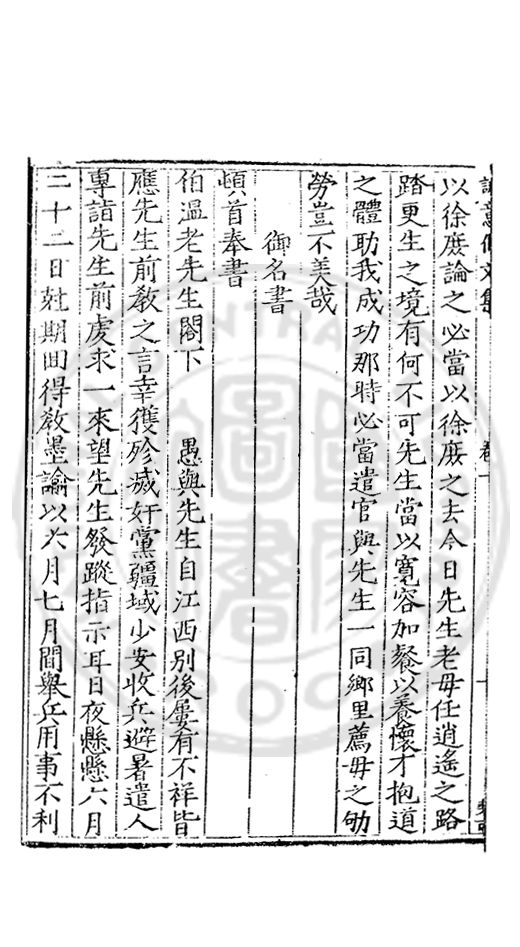 以徐庶論之必當以徐庶之去今日先生老母任逍遙之路
踏更生之境有何不可先生當以寬容加餐以養懷才抱道
之體助我成功那時必當遣官與先生一同鄉里薦母之劬
勞豈不美哉
御名書
頓首奉書
伯溫老先生閣下　愚與先生自江西別後屢有不祥皆
應先生前教之言幸獲殄滅奸黨疆域少安收兵避暑遣人
專詣先生前虔求一來望先生發蹤指示耳日夜懸懸六月
二十二日尅期囬得教墨諭以六月七月間舉兵用事不利